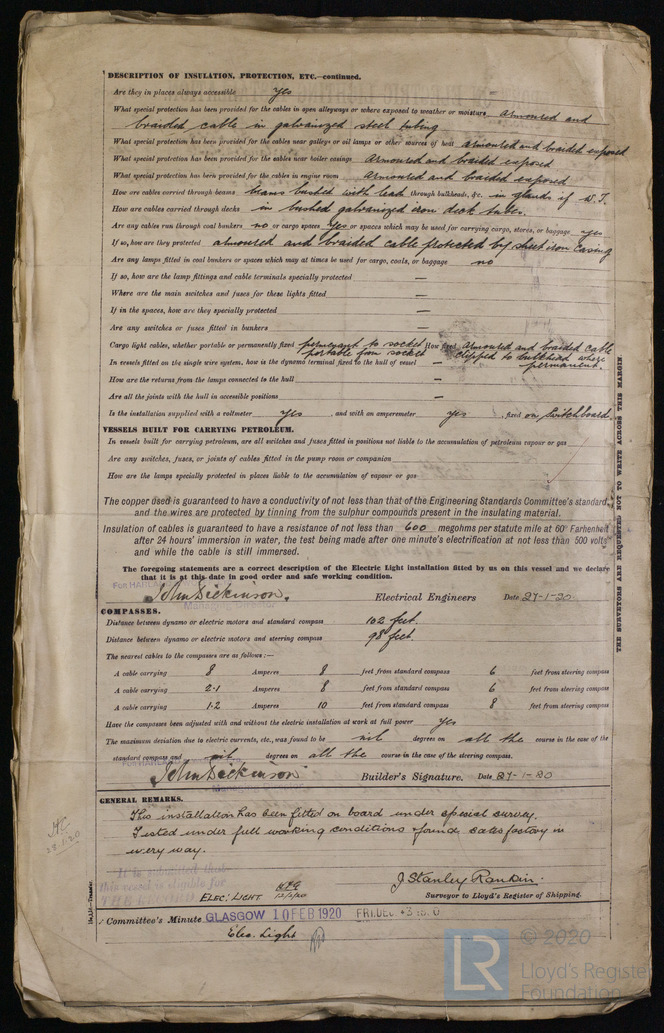 DESCRIPTION OF INSULATION, PROTECTION, ETC.—continued.
Are they in places always accessible yes
What special protection has been provided for the cables in open alleyways or where exposed to weather or moisture armoured and
braided cable in galvanized steel tubing
What special protection has been provided for the cables near galleys or oil lamps or other sources of heat armoured and braided exposed
What special protection has been provided for the cables near boiler casings armoured and braided exposed
What special protection has been provided for the cables in engine room armoured and braided exposed
How are cables carried through beams beams bushed with lead through bulkheads, &c. in glands if W.T.
How are cables carried through decks in bushed galvanized iron deck tubes.
Are any cables run through coal bunkers no or cargo spaces yes or spaces which may be used for carrying cargo, stores, or baggage yes
If so, how are they protected armoured and braided cable protected by sheet iron casing
Are any lamps fitted in coal bunkers or spaces which may at times be used for cargo, coals, or baggage no
If so, how are the lamp fittings and cable terminals specially protected —
Where are the main switches and fuses for these lights fitted —
If in the spaces, how are they specially protected —
Are any switches or fuses fitted in bunkers —
Cargo light cables, whether portable or permanently fixed permanent to socket How fixed armoured and braided cable
portable from socket clipped to bulkhead where
In vessels fitted on the single wire system, how is the dynamo terminal fixed to the hull of vessel — permanent.
How are the returns from the lamps connected to the hull —
Are all the joints with the hull in accessible positions —
Is the installation supplied with a voltmeter yes , and with an amperemeter yes , fixed on switchboard.
VESSELS BUILT FOR CARRYING PETROLEUM.
In vessels built for carrying petroleum, are all switches and fuses fitted in positions not liable to the accumulation of petroleum vapour or gas
Are any switches, fuses, or joints of cables fitted in the pump room or companion
How are the lamps specially protected in places liable to the accumulation of vapour or gas
The copper used is guaranteed to have a conductivity of not less than that of the Engineering Standards Committee's standard,
and the wires are protected by tinning from the sulphur compounds present in the insulating material.
Insulation of cables is guaranteed to have a resistance of not less than 600 megohms per statute mile at 60° Farhenheit
after 24 hours' immersion in water, the test being made after one minute's electrification at not less than 500 volts
and while the cable is still immersed.
The foregoing statements are a correct description of the Electric Light installation fitted by us on this vessel and we declare
that it is at this date in good order and safe working condition.
John Dickinson. Electrical Engineers Date 27-1-20
COMPASSES.
Distance between dynamo or electric motors and standard compass 102 feet.
Distance between dynamo or electric motors and steering compass 98 feet.
The nearest cables to the compasses are as follows:—
A cable carrying 8 Amperes 8 feet from standard compass 6 feet from steering compass
A cable carrying 2·1 Amperes 8 feet from standard compass 6 feet from steering compass
A cable carrying 1·2 Amperes 10 feet from standard compass 8 feet from steering compass
Have the compasses been adjusted with and without the electric installation at work at full power yes
The maximum deviation due to electric currents, etc., was found to be nil degrees on all the course in the case of the
standard compass and nil degrees on all the course in the case of the steering compass.
John Dickinson Builder's Signature. Date 27-1-20
GENERAL REMARKS.
This installation has been fitted on board under special survey.
Tested under full working conditions & found satisfactory in
every way.
It is submitted that
this vessel is eligible for
THE RECORD ELEC: LIGHT
J Stanley Rankin.
Surveyor to Lloyd's Register of Shipping.
Committee's Minute GLASGOW 10 FEB 1920
Elec. Light
THE SURVEYORS ARE REQUESTED NOT TO WRITE ACROSS THIS MARGIN.
29.1.20
LR
© 2020
Lloyd's Register
Foundation